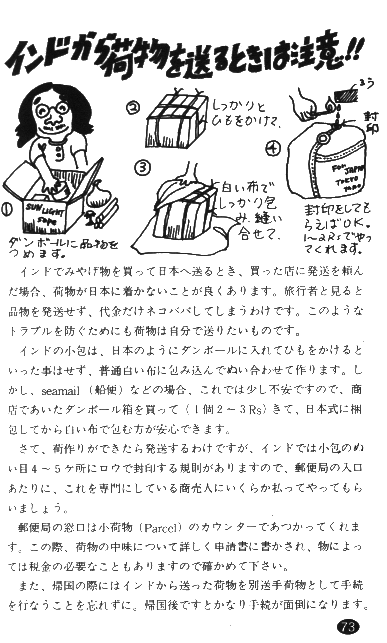 インドから荷物を送るときは注意!!
①
SUNLIGHT
SOAP
ダンボールに品物を
つめます。
②
しっかりと
ひもをかけて、
③
白い布で
しっかり包
み、縫い
合せて、
④
ろう
封印
FOR JAPAN
TOKYO
封印をしても
らえばOK。
1〜2Rsでやっ
てくれます。
インドでみやげ物を買って日本へ送るとき、買った店に発送を頼ん
だ場合、荷物が日本に着かないことが良くあります。旅行者と見ると
品物を発送せず、代金だけネコババしてしまうわけです。このような
トラブルを防ぐためにも荷物は自分で送りたいものです。
インドの小包は、日本のようにダンボールに入れてひもをかけると
いった事はせず、普通白い布に包み込んでぬい合わせて作ります。し
かし、seamail(船便)などの場合、これでは少し不安ですので、商
店であいたダンボール箱を買って(1個2〜3Rs)きて、日本式に梱
包してから白い布で包む方が安心できます。
さて、荷作りができたら発送するわけですが、インドでは小包のぬ
い目4〜5ケ所にロウで封印する規則がありますので、郵便局の入口
あたりに、これを専門にしている商売人にいくらか払ってやってもら
いましょう。
郵便局の窓口は小荷物(Parcel)のカウンターであつかってくれま
す。この際、荷物の中味について詳しく申請書に書かされ、物によっ
ては税金の必要なこともありますので確かめて下さい。
また、帰国の際にはインドから送った荷物を別送手荷物として手続
を行なうことを忘れずに。帰国後ですとかなり手続が面倒になります。
73